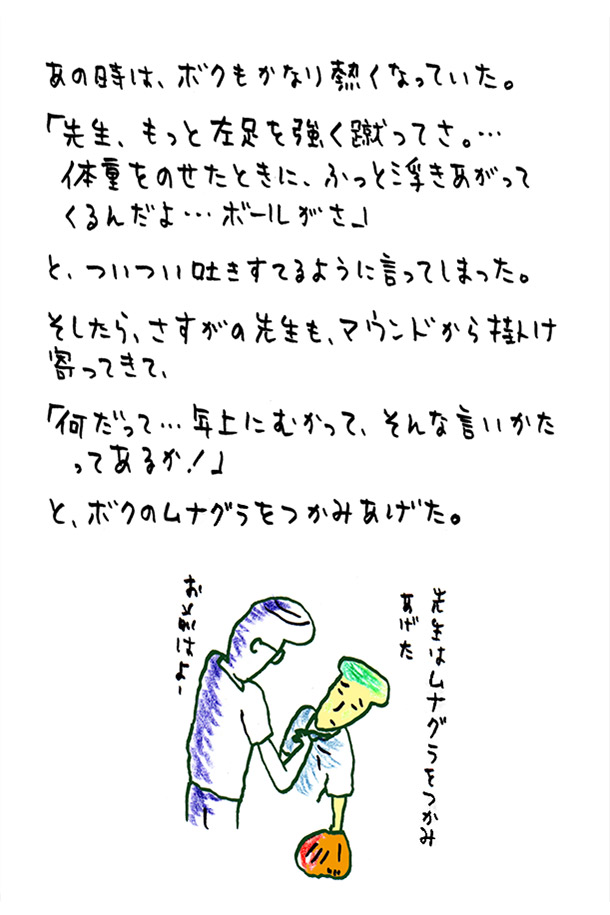 あの時は、ボクもかなり熱くなっていた。
「先生、もっと左足を強く蹴ってさ。…
体重をのせたときに、ふっと浮きあがって
くるんだよ…ボールがさ」
と、ついつい吐きすてるように言ってしまった。
そしたら、さすがの先生も、マウンドから掛け
寄ってきて、
「何だって…年上にむかって、そんな言いかた
ってあるか!」
と、ボクのムナグラをつかみあげた。
先生はムナグラをつかみ
あげた
お前はよー